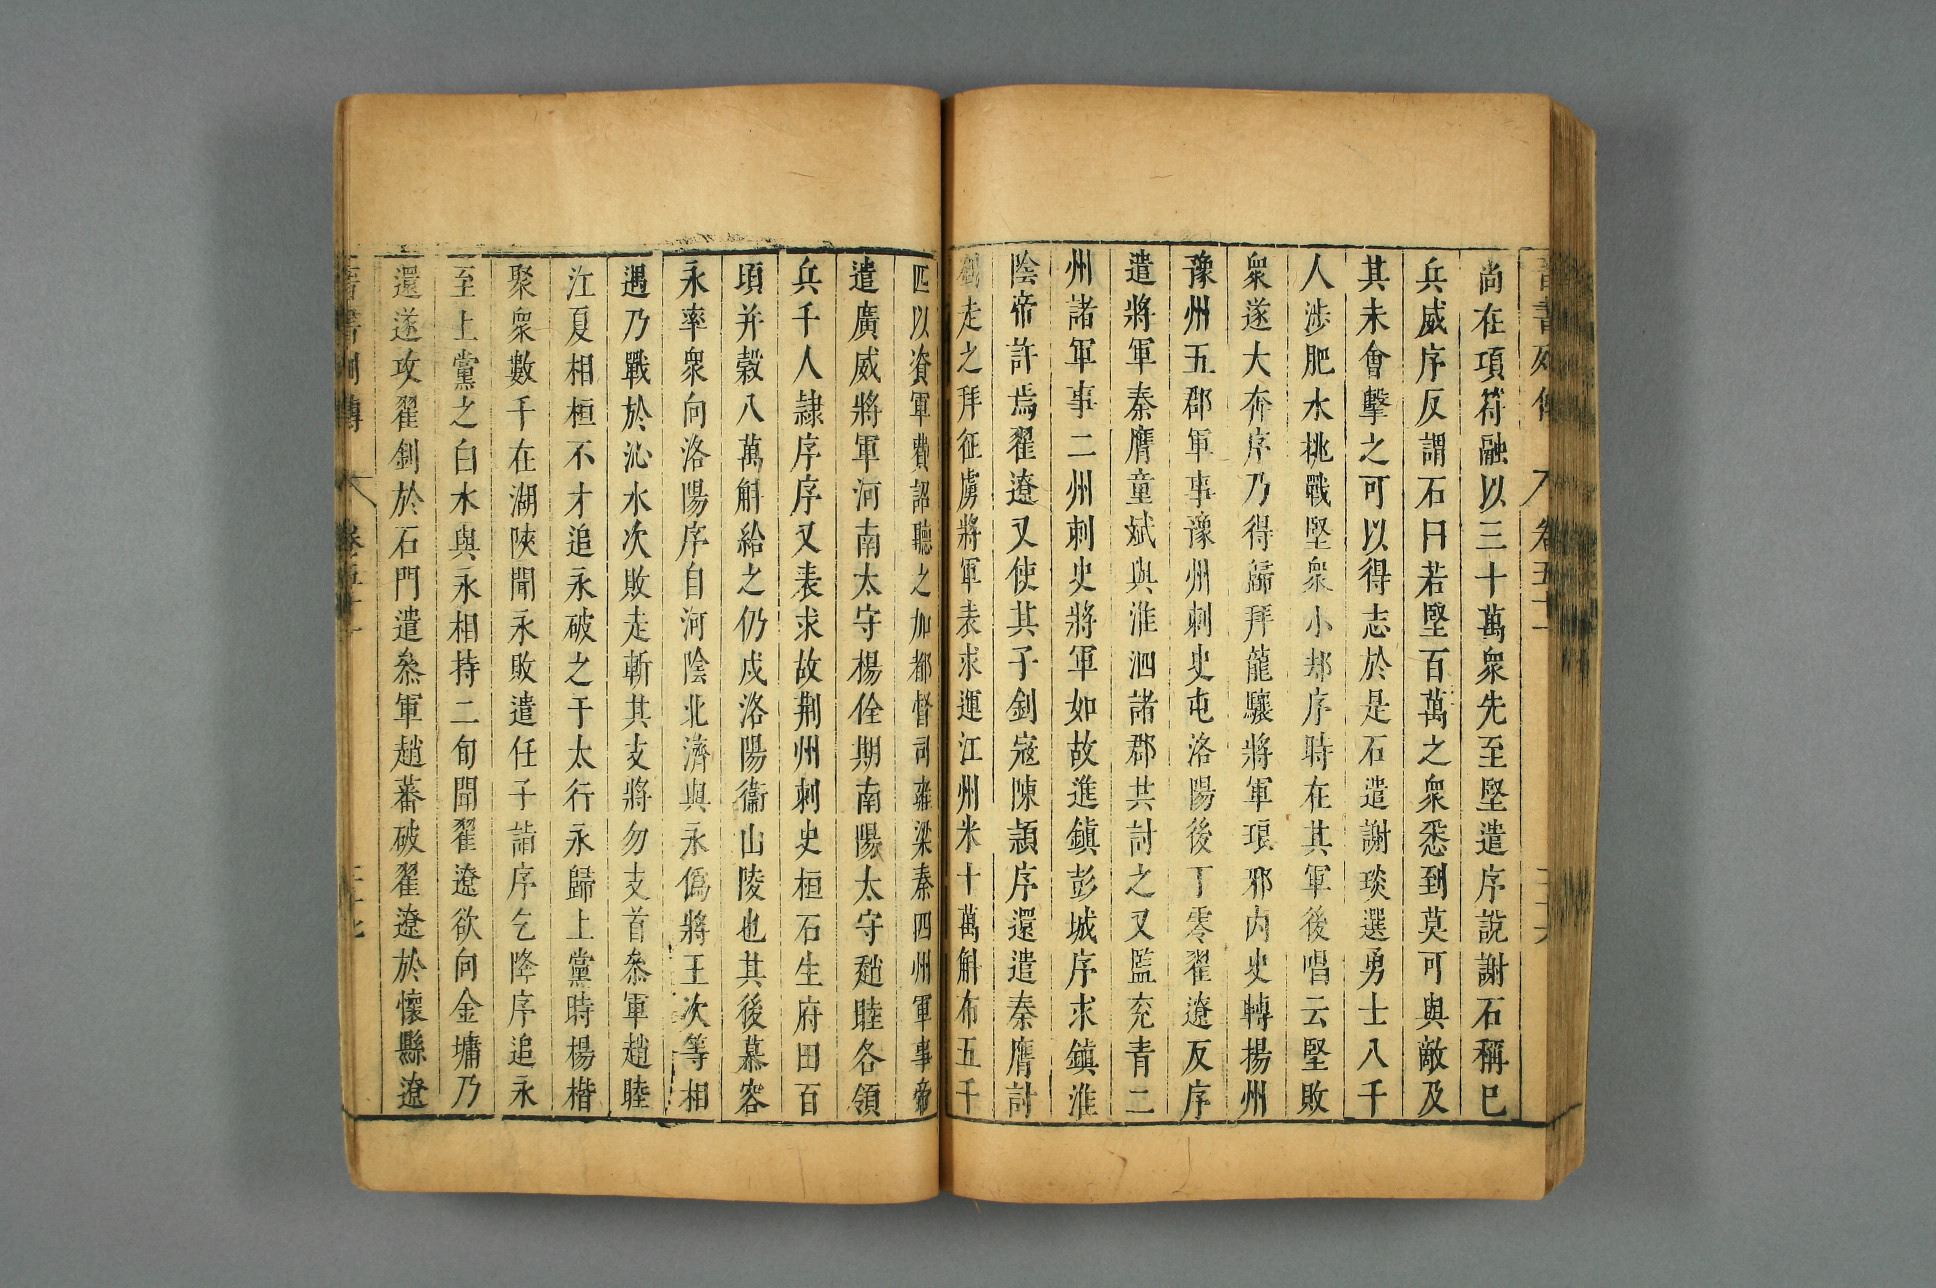 晉書列傳 卷五十一
尚在項符融以三十萬衆先至堅遣序說謝石稱已
兵威序反謂石曰若堅百萬之衆悉到莫可與敵及
其未會擊之可以得志於是石遣謝琰選勇士八千
人涉肥水挑戰堅衆小却序時在其軍後唱云堅敗
衆遂大奔序乃得歸拜龍驤將軍琅邪內史轉揚州
豫州五郡軍事豫州刺史屯洛陽後丁零翟遼反序
遣將軍秦膺童斌與淮泗諸郡共討之又監兖青二
州諸軍事二州刺史將軍如故進鎮彭城序求鎮淮
陰帝許焉翟遼又使其子釗寇陳潁序還遣秦膺討
釗走之拜征虜將軍表求運江州米十萬斛布五千
匹以資軍費詔聽之加都督司雍梁秦四州軍事帝
遣廣威將軍河南太守楊佺期南陽太守趙睦各領
兵千人隷序序又表求故荆州刺史桓石生府田百
頃并穀八萬斛給之仍戍洛陽衞山陵也其後慕容
永率衆向洛陽序自河陰北濟與永僞將王次等相
遇乃戰於沁水次敗走斬其支將勿支首叅軍趙睦
江夏相桓不才追永破之于太行永歸上黨時楊楷
聚衆數千在湖陜聞永敗遣任子詣序乞降序追永
至上黨之白水與永相持二旬聞翟遼欲向金墉乃
還遂攻翟釗於石門遣叅軍趙蕃破翟遼於懷縣遼
晉書列傳 卷五十一 三十七